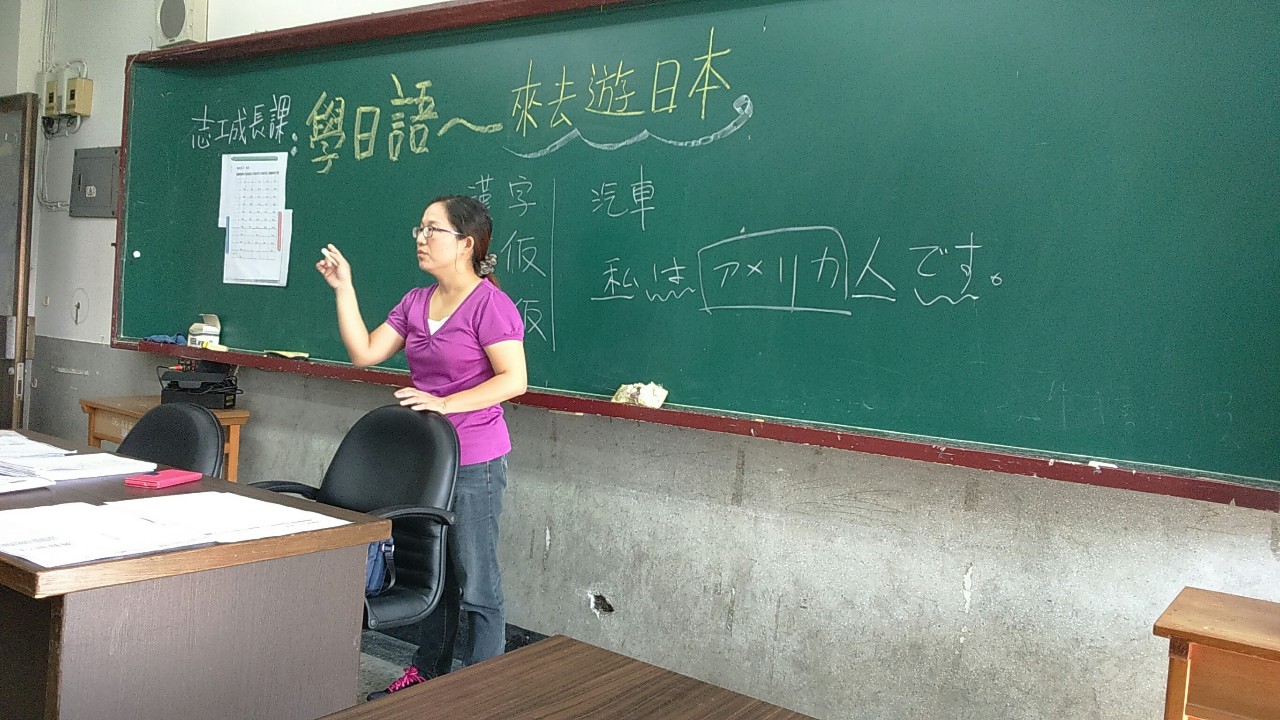 志工成長課:學日語~來去遊日本
漢字
仮
仮
汽車
私はアメリカ人です。